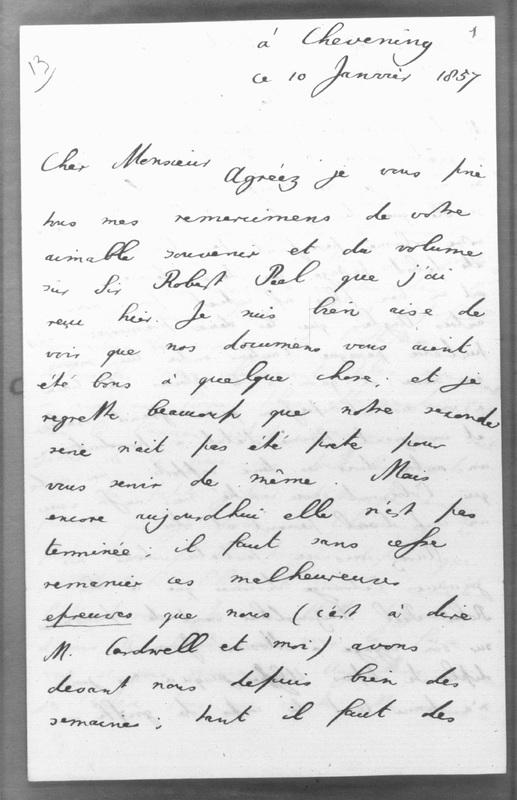 13)
1
à Chevening
ce 10 Janvier 1857
Cher Monsieur Agréez je vous prie
tous mes remercimens de votre
aimable souvenir et du volume
sur Sir Robert Peel que j'ai
reçu hier. Je suis bien aise de
voir que nos documens vous aient
été bons à quelque chose, et je
regrette beaucoup que notre seconde
serie n'ait pas été prete pour
vous servir de même. Mais
encore aujourdhui elle n'est pas
terminée; il faut sans cesse
remanier ces malheureuses
epreuves que nous (c'est à dire
M. Cardwell et moi) avons
devant nous depuis bien des
semaines; tant il faut des